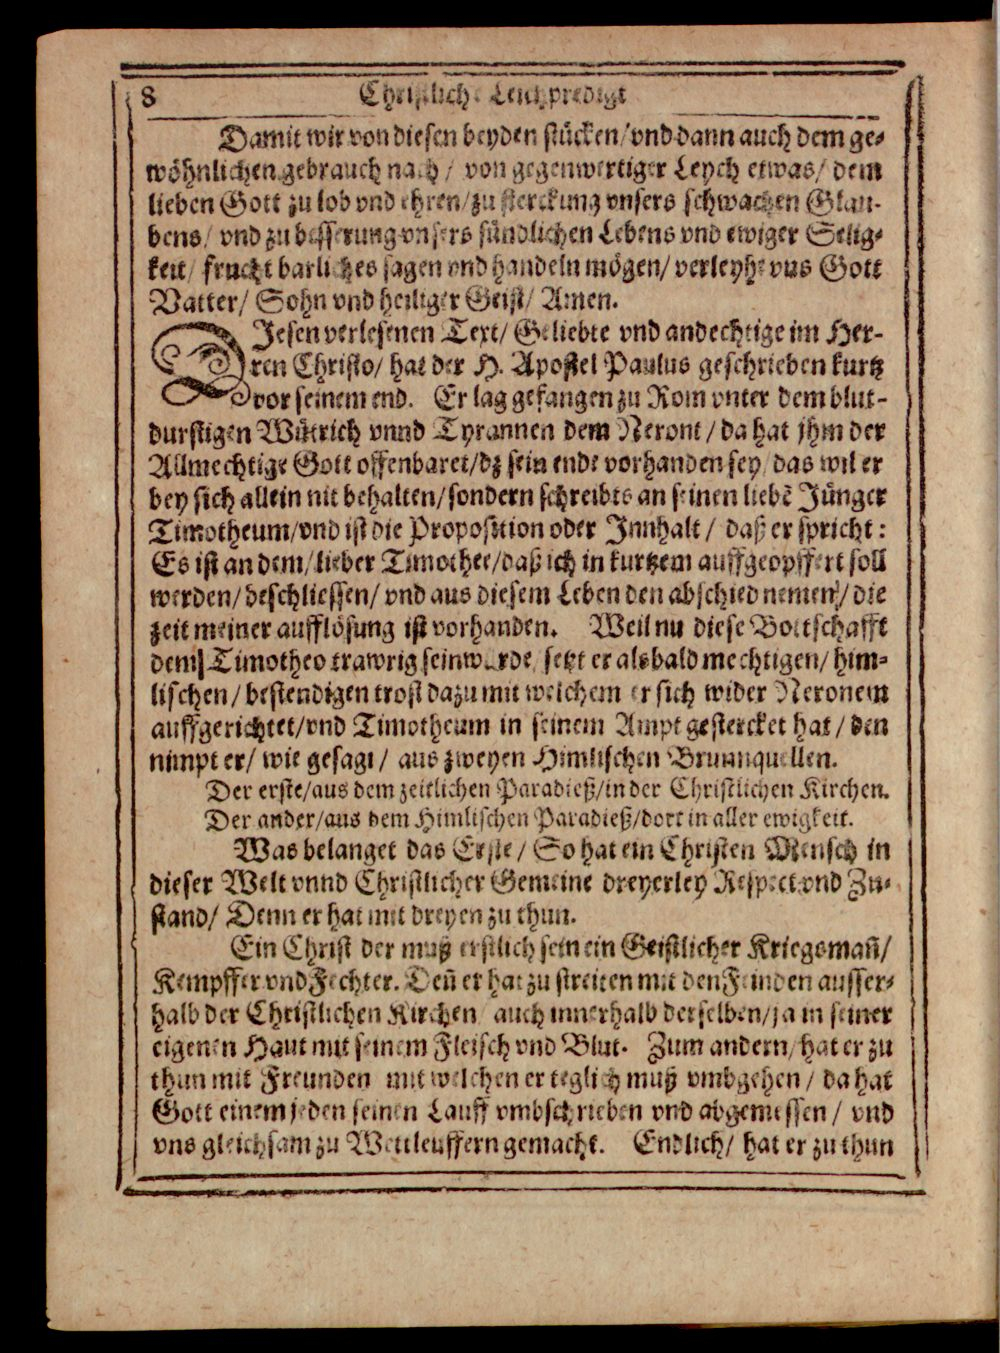 8 Christliche Leichpredigt
Damit wir von diesen beyden stücken/ vnd dann auch dem ge-
wöhnlichen gebrauch nach/ von gegenwertiger Leych etwas/ dem
lieben Gott zu lob vnd ehren/ zu sterckung vnsers schwachen Glau-
bens/ vnd zu besserung vnsers sündlichen Lebens vnd ewiger Selig-
keit/ frucht barliches sagen vnd handeln mögen/ verleyhe vns Gott
Vatter/ Sohn vnd heiliger Geist/ Amen.
DIesen verlesenen Text/ Geliebte vnd andechtige im Her-
ren Christo/ hat der H. Apostel Paulus geschrieben kurtz
vor seinem end. Er lag gefangen zu Rom vnter dem blut-
durstigen Wütrich vnnd Tyrannen dem Neront/ da hat jhm der
Allmechtige Gott offenbaret/ dz sein ende vorhanden sey/ das wil er
bey sich allein nit behalten/ sondern schreibts an seinen liebẽ Jünger
Timotheum/ vnd ist die Proposition oder Innhalt/ daß er spricht:
Es ist an dem/ lieber Timothee/ daß ich in kurtzem auffgeopffert soll
werden/ beschliessen/ vnd aus diesem Leben den abschied nemen/ die
zeit meiner aufflösung ist vorhanden. Weil nu diese Bottschafft
dem Timotheo trawrig sein würde/ setzt er alsbald mechtigen/ him-
lischen/ bestendigen trost dazu mit welchem er sich wider Neronem
auffgerichtet/ vnd Timotheum in seinem Ampt gestercket hat/ den
nimpt er/ wie gesagt/ aus zweyen Himlischen Brunnquellen.
Der erste/ aus dem zeitlichen Paradieß/ in der Christlichen Kirchen.
Der ander/ aus dem Himlischen Paradieß/ dort in aller ewigkeit.
Was belanget das Erste/ So hat ein Christen Mensch in
dieser Welt vnnd Christlicher Gemeine dreyerley Respect vnd Zu-
stand/ Denn er hat mit dreyen zu thun.
Ein Christ der muß erstlich sein ein Geistlicher Kriegsmañ/
Kempffer vnd Fechter. Deñ er hat zu streiten mit den Feinden ausser-
halb der Christlichen Kirchen/ auch innerhalb derselben/ ja in seiner
eigenen Haut mit seinem Fleisch vnd Blut. Zum andern/ hat er zu
thun mit Freunden mit welchen er teglich muß vmbgehen/ da hat
Gott einem jeden seinen Lauff vmbschrieben vnd abgemessen/ vnd
vns gleichsam zu Wettleuffern gemacht. Endlich/ hat er zu thun